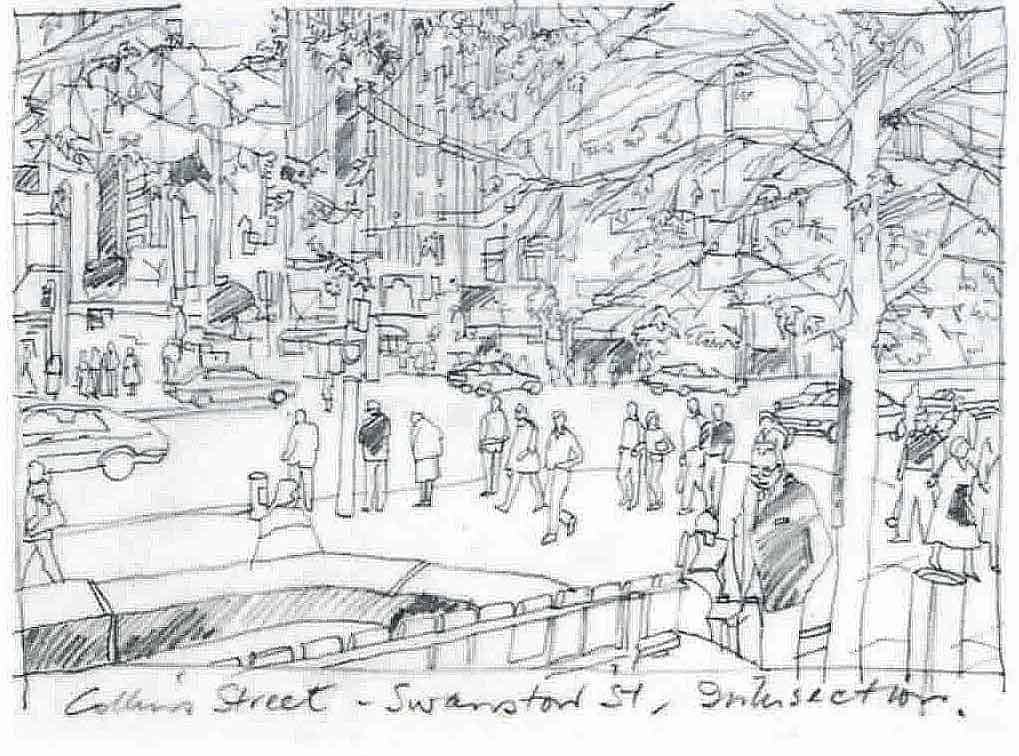 Collins Street - Swanston St, Intersection.